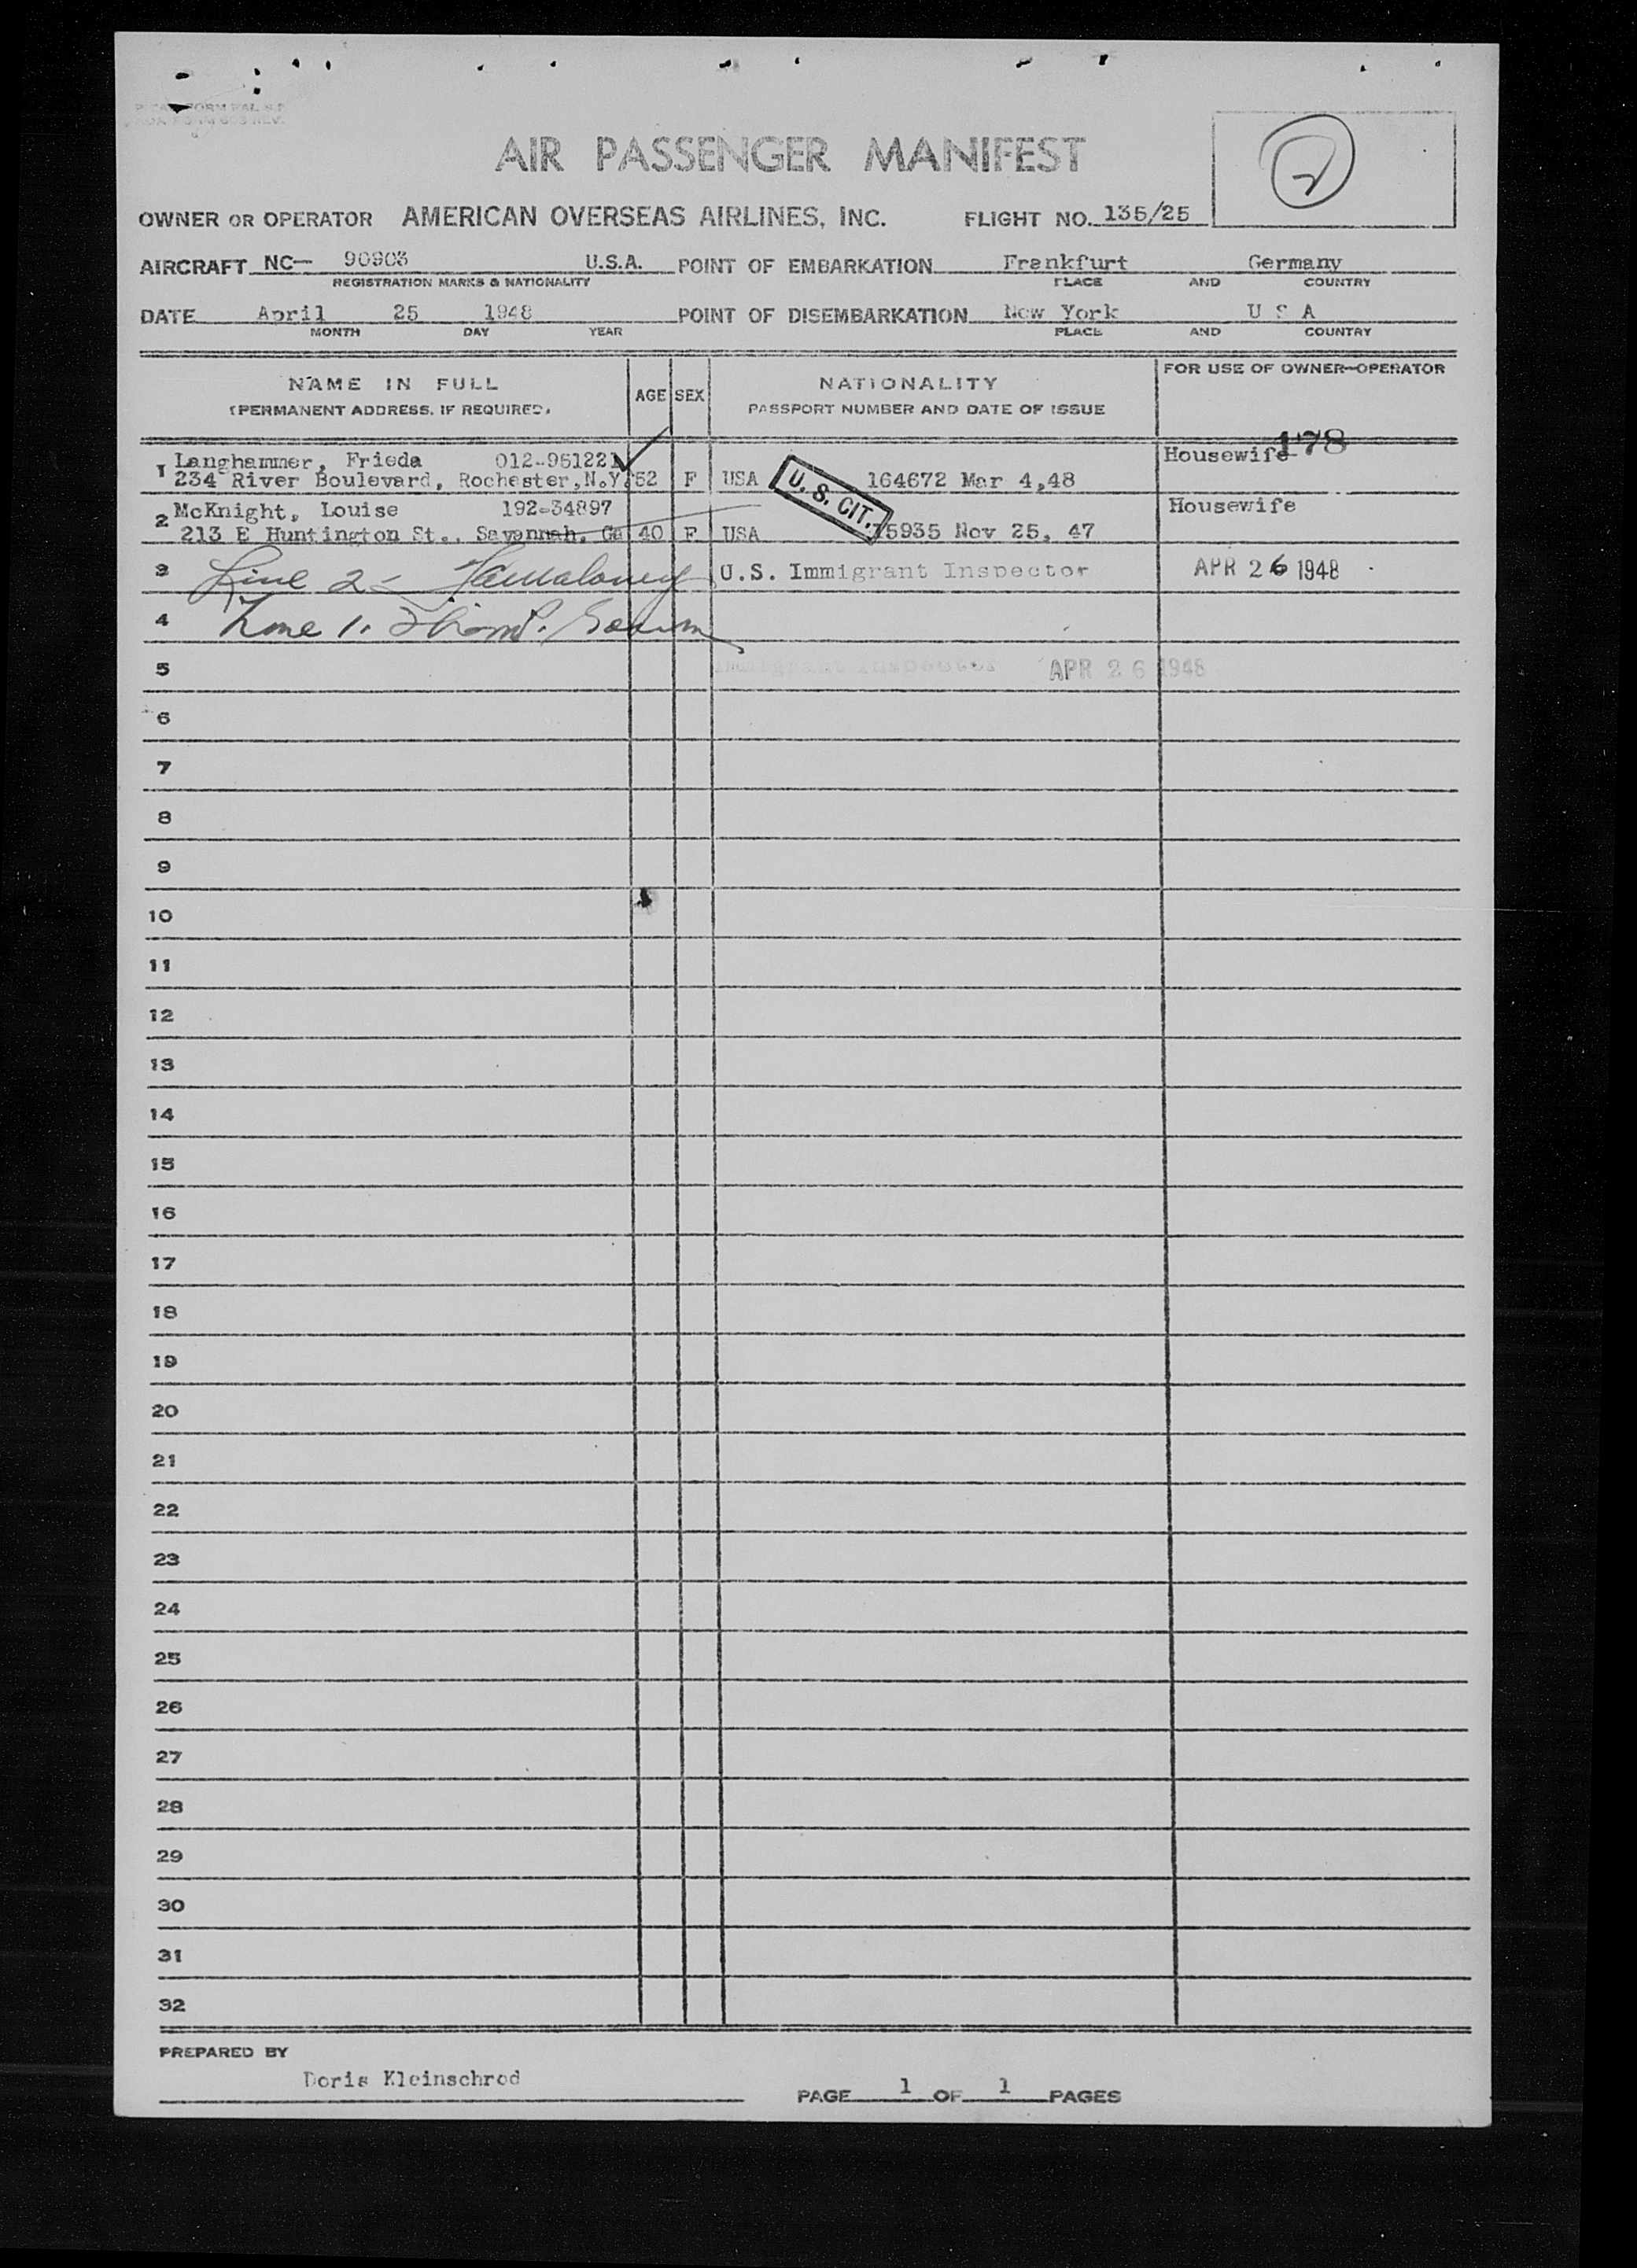 AIR PASSENGER MANIFEST
2
OWNER OR OPERATOR AMERICAN OVERSEAS AIRLINES, INC. FLIGHT NO. 135/25
AIRCRAFT NC- 90903 U.S.A. POINT OF EMBARKATION Frankfurt Germany
REGISTRATION MARKS & NATIONALITY PLACE AND COUNTRY
DATE April 25 1948 POINT OF DISEMBARKATION New York U S A
MONTH DAY YEAR PLACE AND COUNTRY
NAME IN FULL AGE SEX NATIONALITY FOR USE OF OWNER-OPERATOR
(PERMANENT ADDRESS, IF REQUIRED) PASSPORT NUMBER AND DATE OF ISSUE
178
1 Langhammer, Frieda 012-961221 Housewife
234 River Boulevard, Rochester, N.Y. 52 F USA U. S. CIT. 164672 Mar 4,48
2 McKnight, Louise 192-34897 Housewife
213 E Huntington St., Savannah, Ga 40 F USA 75935 Nov 25, 47
3 Line 2 - U.S. Immigrant Inspector APR 26 1948
4 Line 1.
5 Immigrant Inspector APR 26 1948
6
7
8
9
10
11
12
13
14
15
16
17
18
19
20
21
22
23
24
25
26
27
28
29
30
31
32
PREPARED BY
Doris Kleinschrod
PAGE 1 OF 1 PAGES